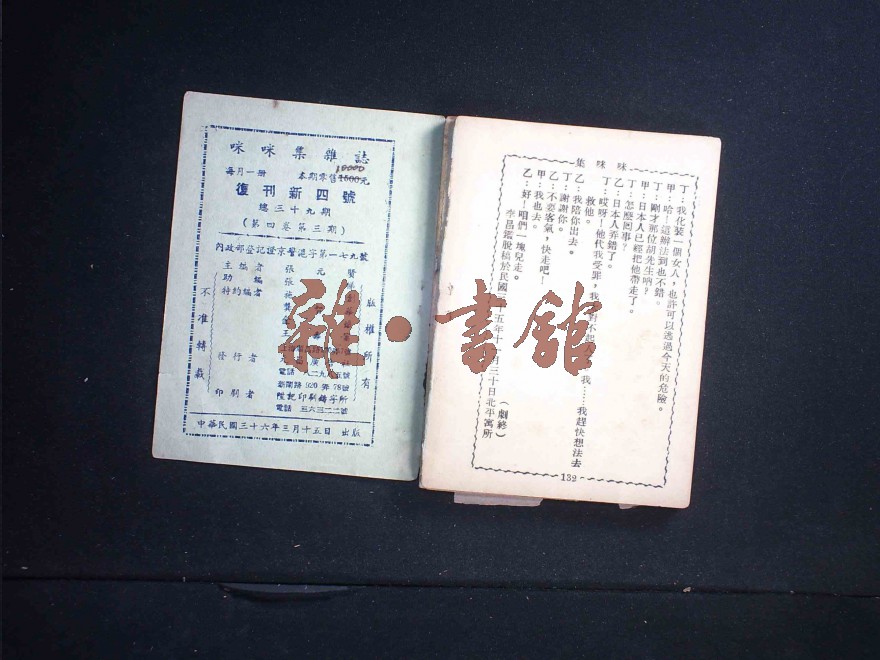 咪咪集雜誌
每月一册 本期零售1500元
10000
復刊新四號
總三十九期
(第四卷第三期)
內政部登記證京警滬字第一七九號
主編者 張元賢
助編 張
特約編者 施
龔
金
王
版權所有
不准轉載
發行者
電話
新閘路920弄78號
印刷者 陞記印刷鑄字所
電話 三六三二二號
中華民國三十六年三月十五日 出版
咪味集
丁:我化裝一個女人,也許可以逃過今天的危險。
甲:哈!這辦法到也不錯。
丁:剛才那位胡先生吶?
甲:日本人已經把他帶走了。
丁:怎麼囘事?
乙:日本人弄錯了。
丁:哎呀!他代我受罪,我對不起 我……我趕快想法去
救他。
乙:我陪你出去。
丁:謝謝你。
乙:不要客氣,快走吧!
甲:我也去。
乙:好!咱們一塊兒走。
(劇終)
李昌鑑脫稿於民國 十五年十 月三十日北平寓所
132
雜·書館